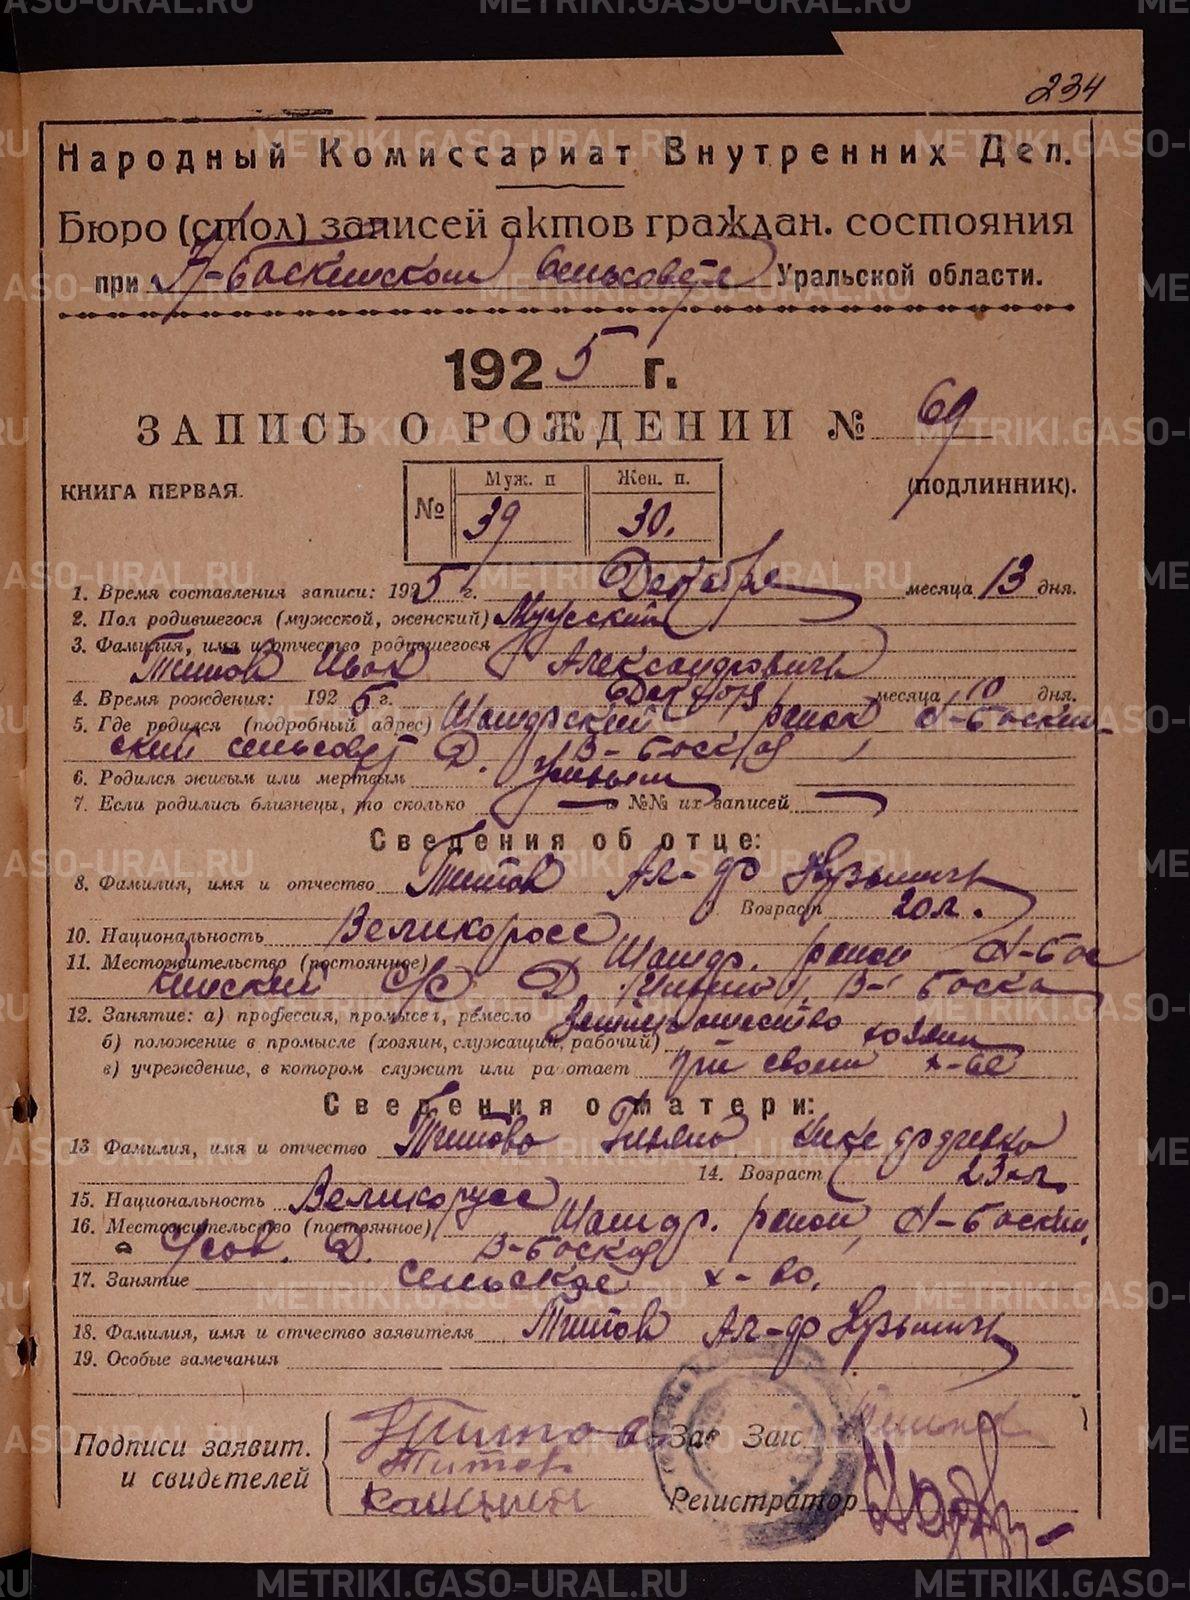 234
Народный Комиссариат Внутренних Дел.
Бюро (стол) записей актов граждан. состояния
при Н-Баскинском Сельсовете Уральской области.
1925 г.
ЗАПИСЬ О РОЖДЕНИИ № 69
КНИГА ПЕРВАЯ. (ПОДЛИННИК).
№ Муж. п Жен. п.
39 30.
1. Время составления записи: 1925 г. Декабре месяца 13 дня.
2. Пол родившегося (мужской, женский) Мужский
3. Фамилия, имя и отчество родившегося
Титов Иван Александровичь
4. Время рождения: 1925 г. месяца 10 дня.
5. Где родился (подробный адрес) район Н-Баскин-
ский сельсовет Д. В-Баская
6. Родился живым или мертвым живым
7. Если родились близнецы, то сколько — и №№ их записей —
Сведения об отце:
8. Фамилия, имя и отчество Титов Ал-др Кузьмичь
Возраст 20 л.
10. Национальность Великоросс
11. Местожительство (постоянное) район Н-Бас
кинский С/С Д. В-Баска
12. Занятие: а) профессия, промысел, ремесло
б) положение в промысле (хозяин, служащий, рабочий) хозяин
в) учреждение, в котором служит или работает при своем х-ве
Сведения о матери:
13 Фамилия, имя и отчество Титова
14. Возраст 23 л.
15. Национальность Великорусс
16. Местожительство (постоянное) район, Н-Баскин.
Д. В-Баская
17. Занятие сельское х-во.
18. Фамилия, имя и отчество заявителя Титов Ал-др Кузьмичь
19. Особые замечания
Подписи заявит. и свидетелей
Титов
Титов
Зав Загс
Регистратор
METRIKI.GASO-URAL.RU